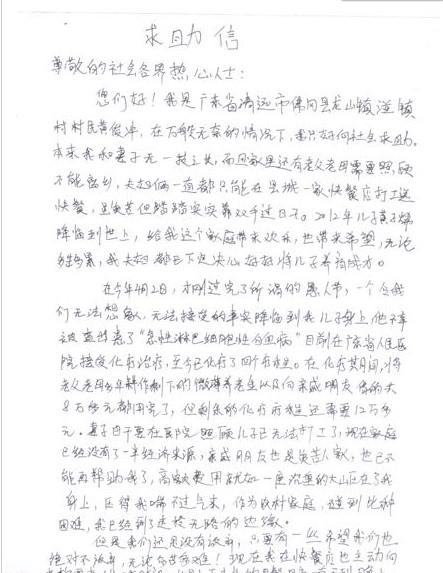 求助信
尊敬的社会各界热心人士：
您们好！我是广东省清远市佛冈县龙山镇
村村民黄俊冲，在万般无奈的情况下，我只好向社会求助。
本来我和妻子无一技之长，而且家里还有老父老母需要照顾
不能离乡，夫妇俩一直都只能在县城一家快餐店打工送
快餐，虽辛苦但踏踏实实靠双手过日子。2012年儿子黄
降临到世上，给我这个家庭带来欢乐，也带来希望，无论
多苦多累，我夫妇都已下定决心好好将儿子养育成才。
在今年4月2日，才刚过完了所谓的愚人节，一个令我
们无法想象、无法接受的事实降临到我儿子身上，他不幸
被查出患了“急性淋巴细胞性白血病”目前在广东省人民医
院接受化疗治疗，至今已化疗了四个疗程。在化疗其间，将
老父老母多年耕作剩下的微薄养老金以及向亲戚朋友借的大
8万多元都用完了，但剩余的化疗疗程还需要12万多
元。妻子由于要在医院照顾儿子已无法打工了，现在家庭
已经没有了一半经济来源，亲戚朋友也是贫苦人家，也已不
能再帮助我了，高额费用就如一座沉重的大山压在了我
身上，压得我喘不过气来，作为农村家庭，遇到此种
困难，我已经到了走投无路的边缘。
但是我们还是没有放弃，只要有一丝希望我们也
绝对不放弃，无论多苦多难！现在我在快餐店也主动向